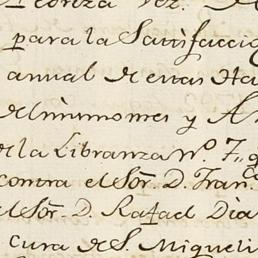 para la Satisfacció
anual de estas Ha
de los mismos y A
de la Libranza Nº 7.
contra el Sôr. D. Fran.
el Sôr. D. Rafael Dia
Cura de S. Migueli